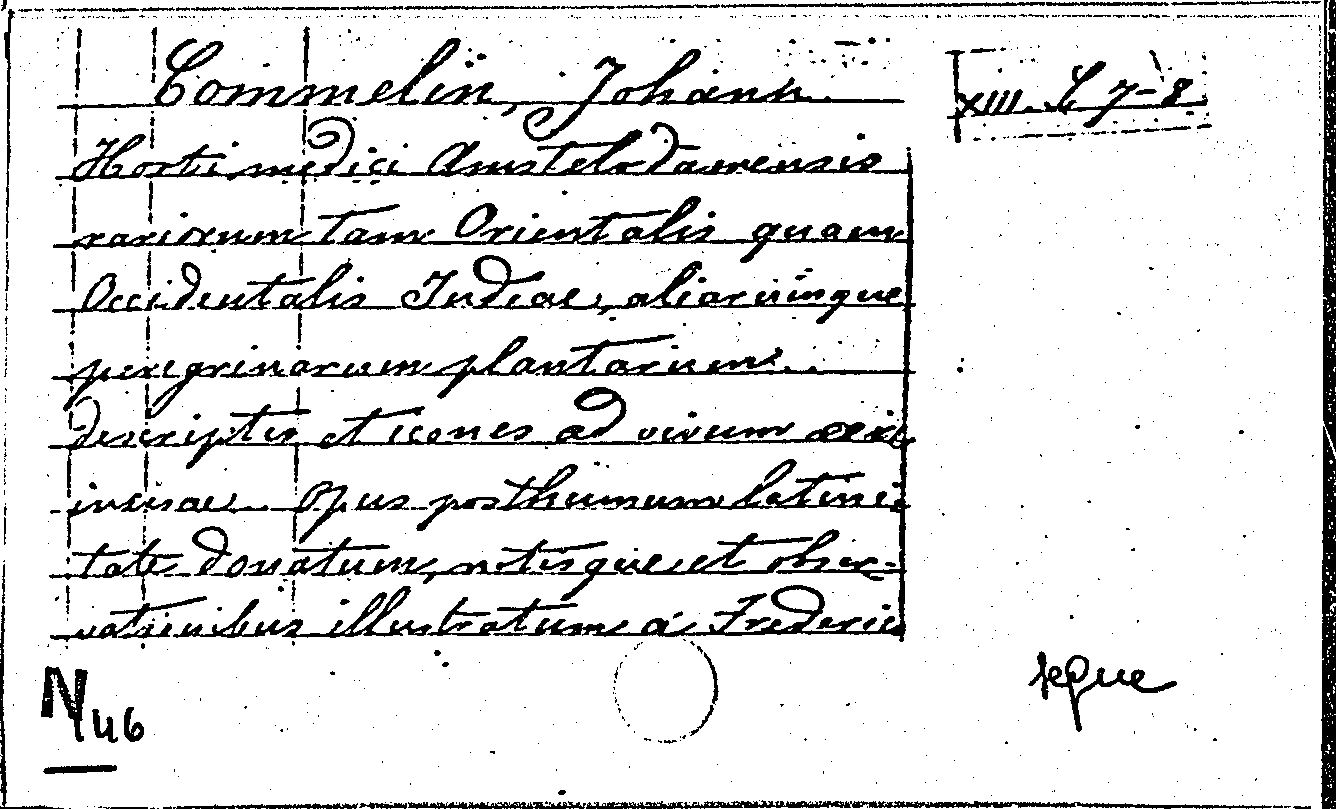 Commelin, Johann. XIII. L 7-8
Horti medici Amstelodamensis
rariorum tam Orientalis quam
Occidentalis Indiae, aliarumque
peregrinarum plantarum...
descriptio et icones ad vivum aeri
incisae... Opus posthumum latini-
tate donatum, notisque et obser-
vationibus illustratum a Frederic
segue
N 46